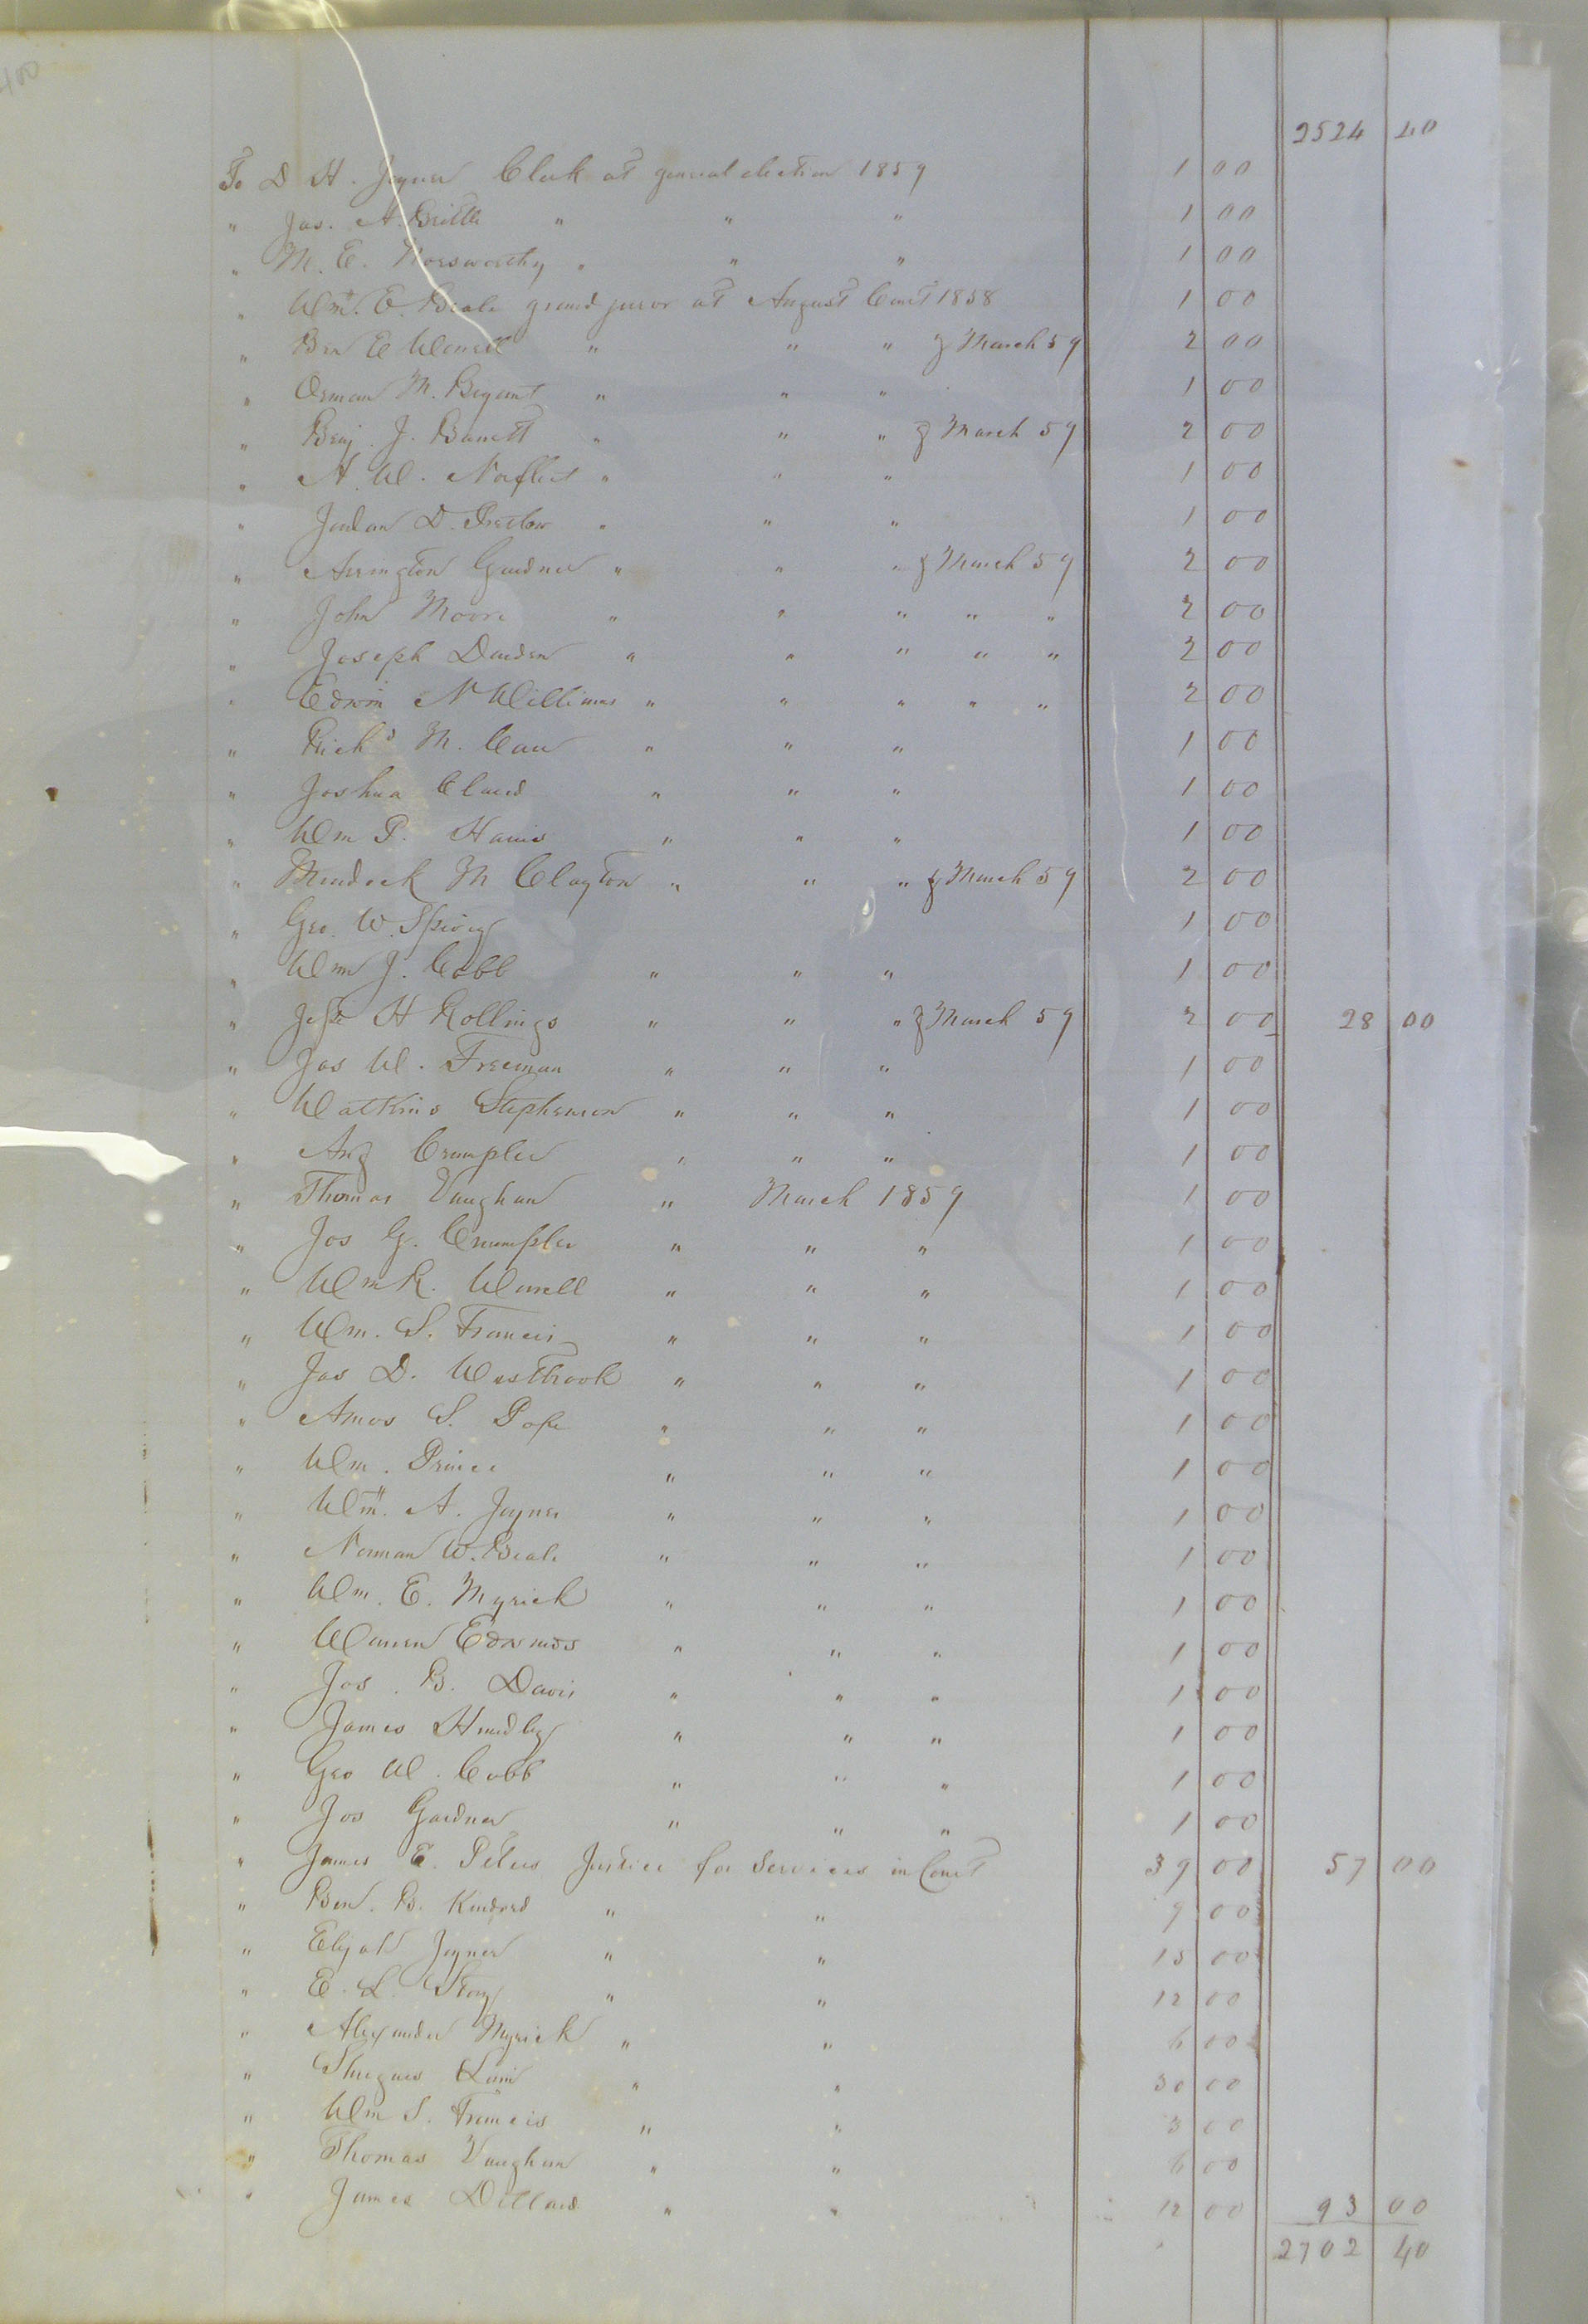 400
2524 40
To D. H. Joyner Clerk at general election 1859 1 00
" Jas. A. Brittle " " " 1 00
" M. E. Norsworthy " " " 1 00
" Wm. E. Beale grand juror at August Court 1858 1 00
" Ben E Worrell " " " & March 59 2 00
" Orman M. Bryant " " " 1 00
" Benj. J. Barrett " " " & March 59 2 00
" A. W. Norfleet " " " 1 00
" Jordan D. Pretlow " " " 1 00
" Arrington Gardner " " " & March 59 2 00
" John Moore " " " " " 2 00
" Joseph Darden " " " " " 2 00
" Edwin N Williams " " " " " 2 00
" Richd M. Carr " " " 1 00
" Joshua Claud " " " 1 00
" Wm P. Harris " " " 1 00
" M Clayton " " " & March 59 2 00
" Geo. W. Spivey 1 00
" Wm J. Cobb " " " 1 00
" Jesse H Rollings " " " & March 59 2 00 28 00
" Jas W. Freeman " " " 1 00
" Watkins Stephenson " " " 1 00
" Crumpler " " " 1 00
" Thomas Vaughan " March 1859 1 00
" Jos G. Crumpler " " " 1 00
" Wm R. Worrell " " " 1 00
" Wm. S. Francis " " " 1 00
" Jas D. Westbrook " " " 1 00
" Amos S. Pope " " " 1 00
" Wm. Prince " " " 1 00
" Wm. A. Joyner " " " 1 00
" Norman W. Beale " " " 1 00
" Wm. E. Myrick " " " 1 00
" Warren Edwards " " " 1 00
" Jos. B. Davis " " " 1 00
" James Handley " " " 1 00
" Geo W. Cobb " " " 1 00
" Jos Gardner " " " 1 00
" James E. Peters Justice for Services in Court 39 00 57 00
" Ben. B. Kindred " " 9 00
" Elijah Joyner " " 15 00
" E. L. Story " " 12 00
" Alexander Myrick " " 6 00
" " " 30 00
" Wm S. Francis " " 3 00
" Thomas Vaughan " " 6 00
" James Dillard " " 12 00 93 00
2702 40